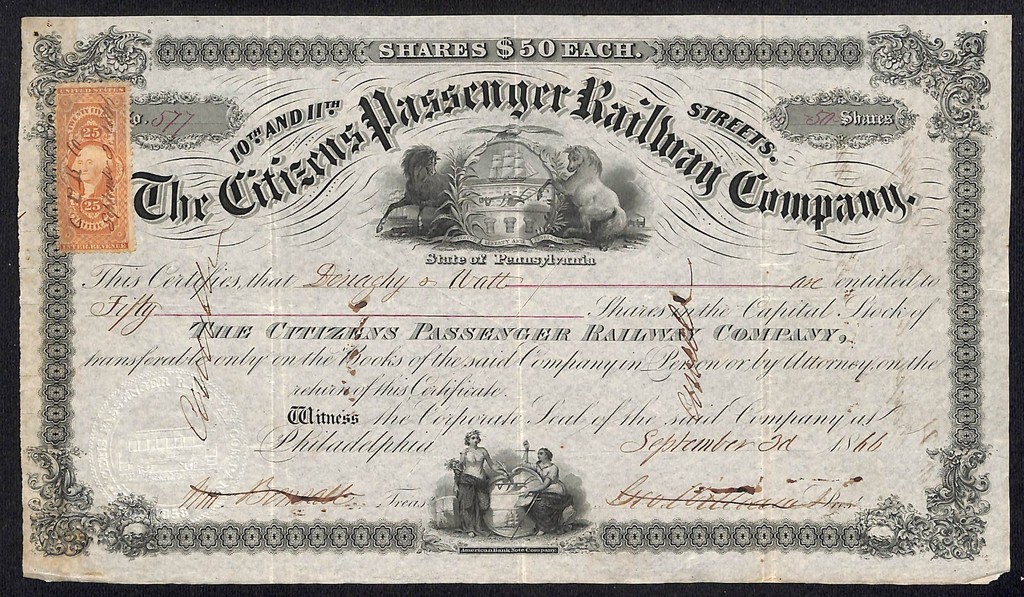 SHARES $50 EACH.
No. 577
50 Shares
10TH AND 11TH STREETS.
The Citizens Passenger Railway Company.
UNITED STATES
25
25
INTER. REVENUE
State of Pennsylvania
This Certifies, that Denachy & Watt are entitled to
Fifty Shares in the Capital Stock of
THE CITIZENS PASSENGER RAILWAY COMPANY,
transferable only on the Books of the said Company in Person or by Attorney, on the
return of this Certificate.
Witness the Corporate Seal of the said Company at
Philadelphia September 3d 1866
Treas
Pres
1858
American Bank Note Company.